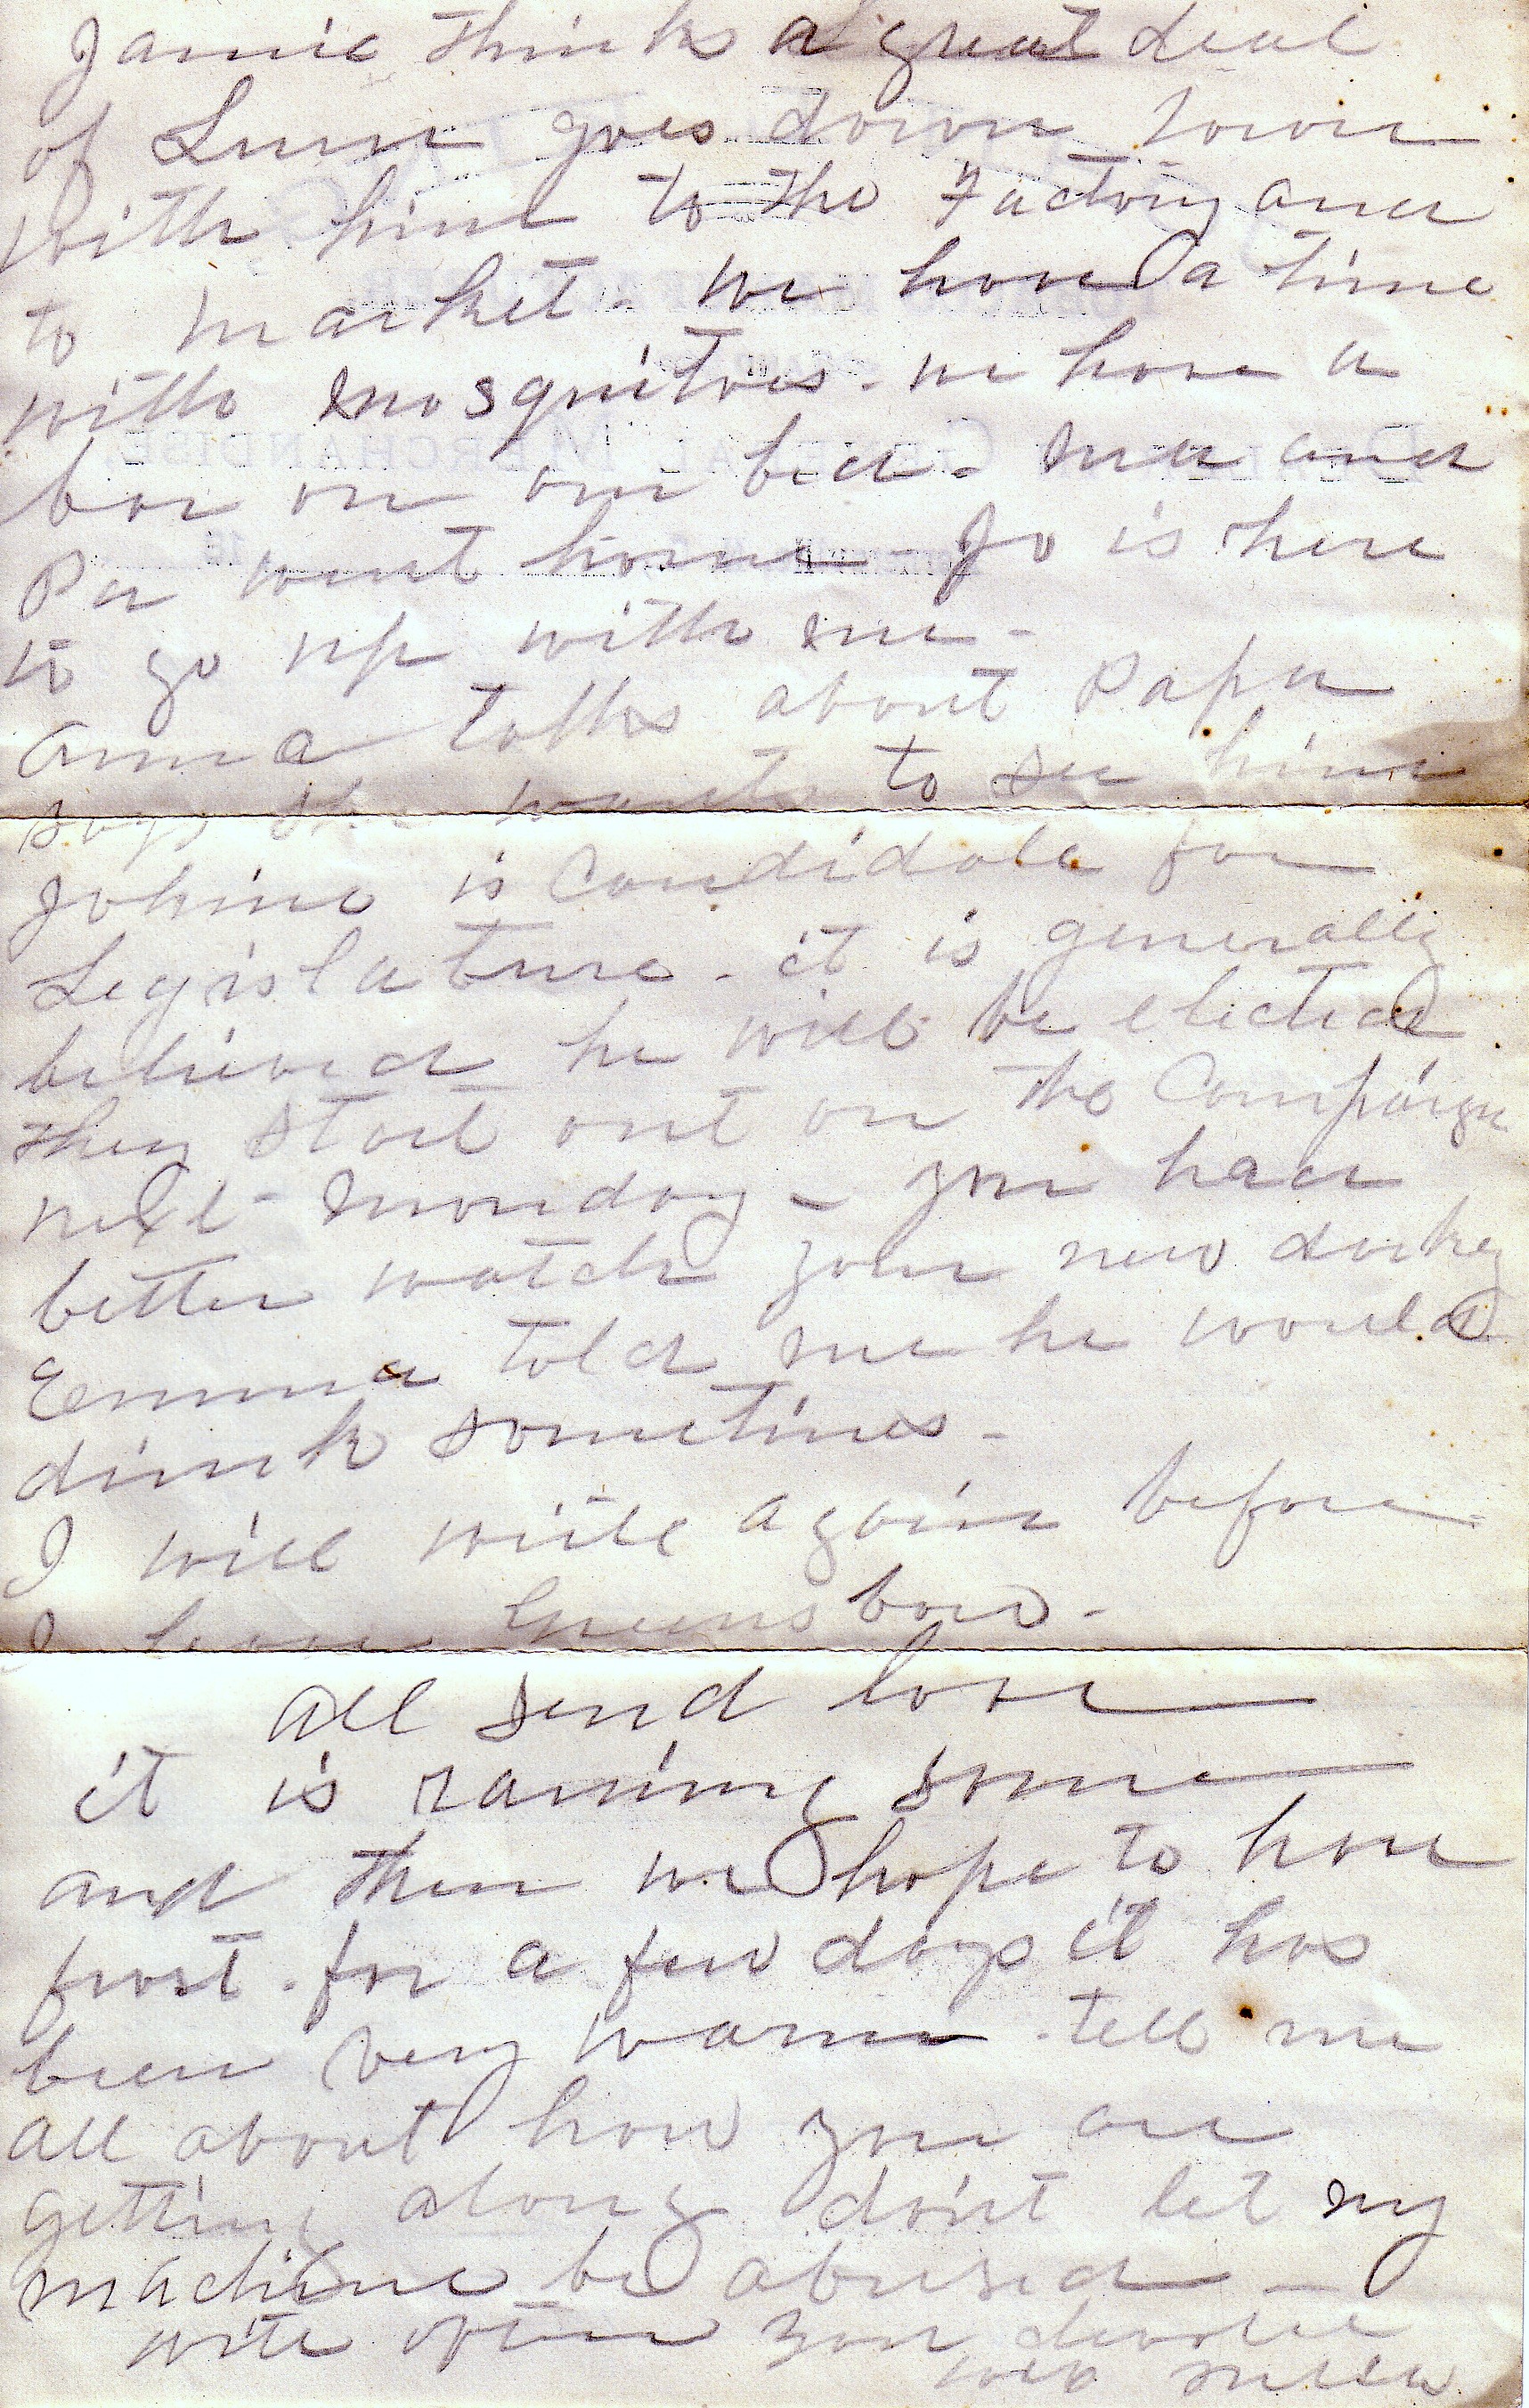 Jamie think a great deal
of Lunn goes down town
with him to the Factory and
to market - we have a time
with mosquitoes - we have a
bar on our bed - ma and
Pa went home Jo is here
to go up with me -
Anna talks about Papa
says she wants to see him
Johnie is Candidate for
Legislature - it is generally
believed he will be elected
they start out on the Campaign
next Monday - you had
better watch your new darkey
Emma told me he would
drink sometimes -
I will write again before
I leave Greensboro -
all send love
it is raining some
and then we hope to have
frost - for a few days it has
been very warm - tell me
all about how you are
getting along don't let my
machine be abused -
write often your devoted
wife